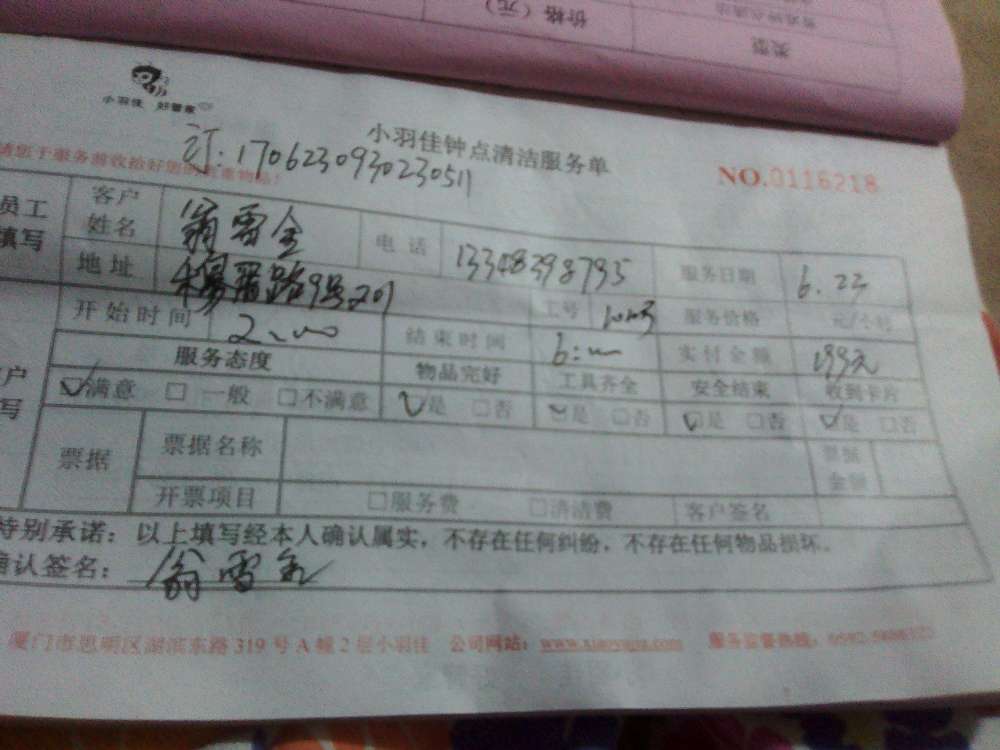 类型
价格（元）
小羽佳 好管家
小羽佳钟点清洁服务单
订:1706230930230511
NO.0116218
请您于服务前收拾好您的贵重物品！
员工
填写
客户
姓名
翁雪金
电话
13348398795
服务日期
6.23
地址
路9号201
工号
服务价格
元/小时
开始时间
2:00
结束时间
6:00
实付金额
199元
服务态度
物品完好
工具齐全
安全结束
收到卡片
满意 □ 一般 □不满意
是 □否
是 □否
是 □否
是 □否
票据
票据名称
票据
金额
开票项目
□服务费
□清洁费
客户签名
特别承诺：以上填写经本人确认属实，不存在任何纠纷，不存在任何物品损坏。
确认签名：翁雪金
厦门市思明区湖滨东路319号A幢2层小羽佳 公司网站： 服务监督热线：